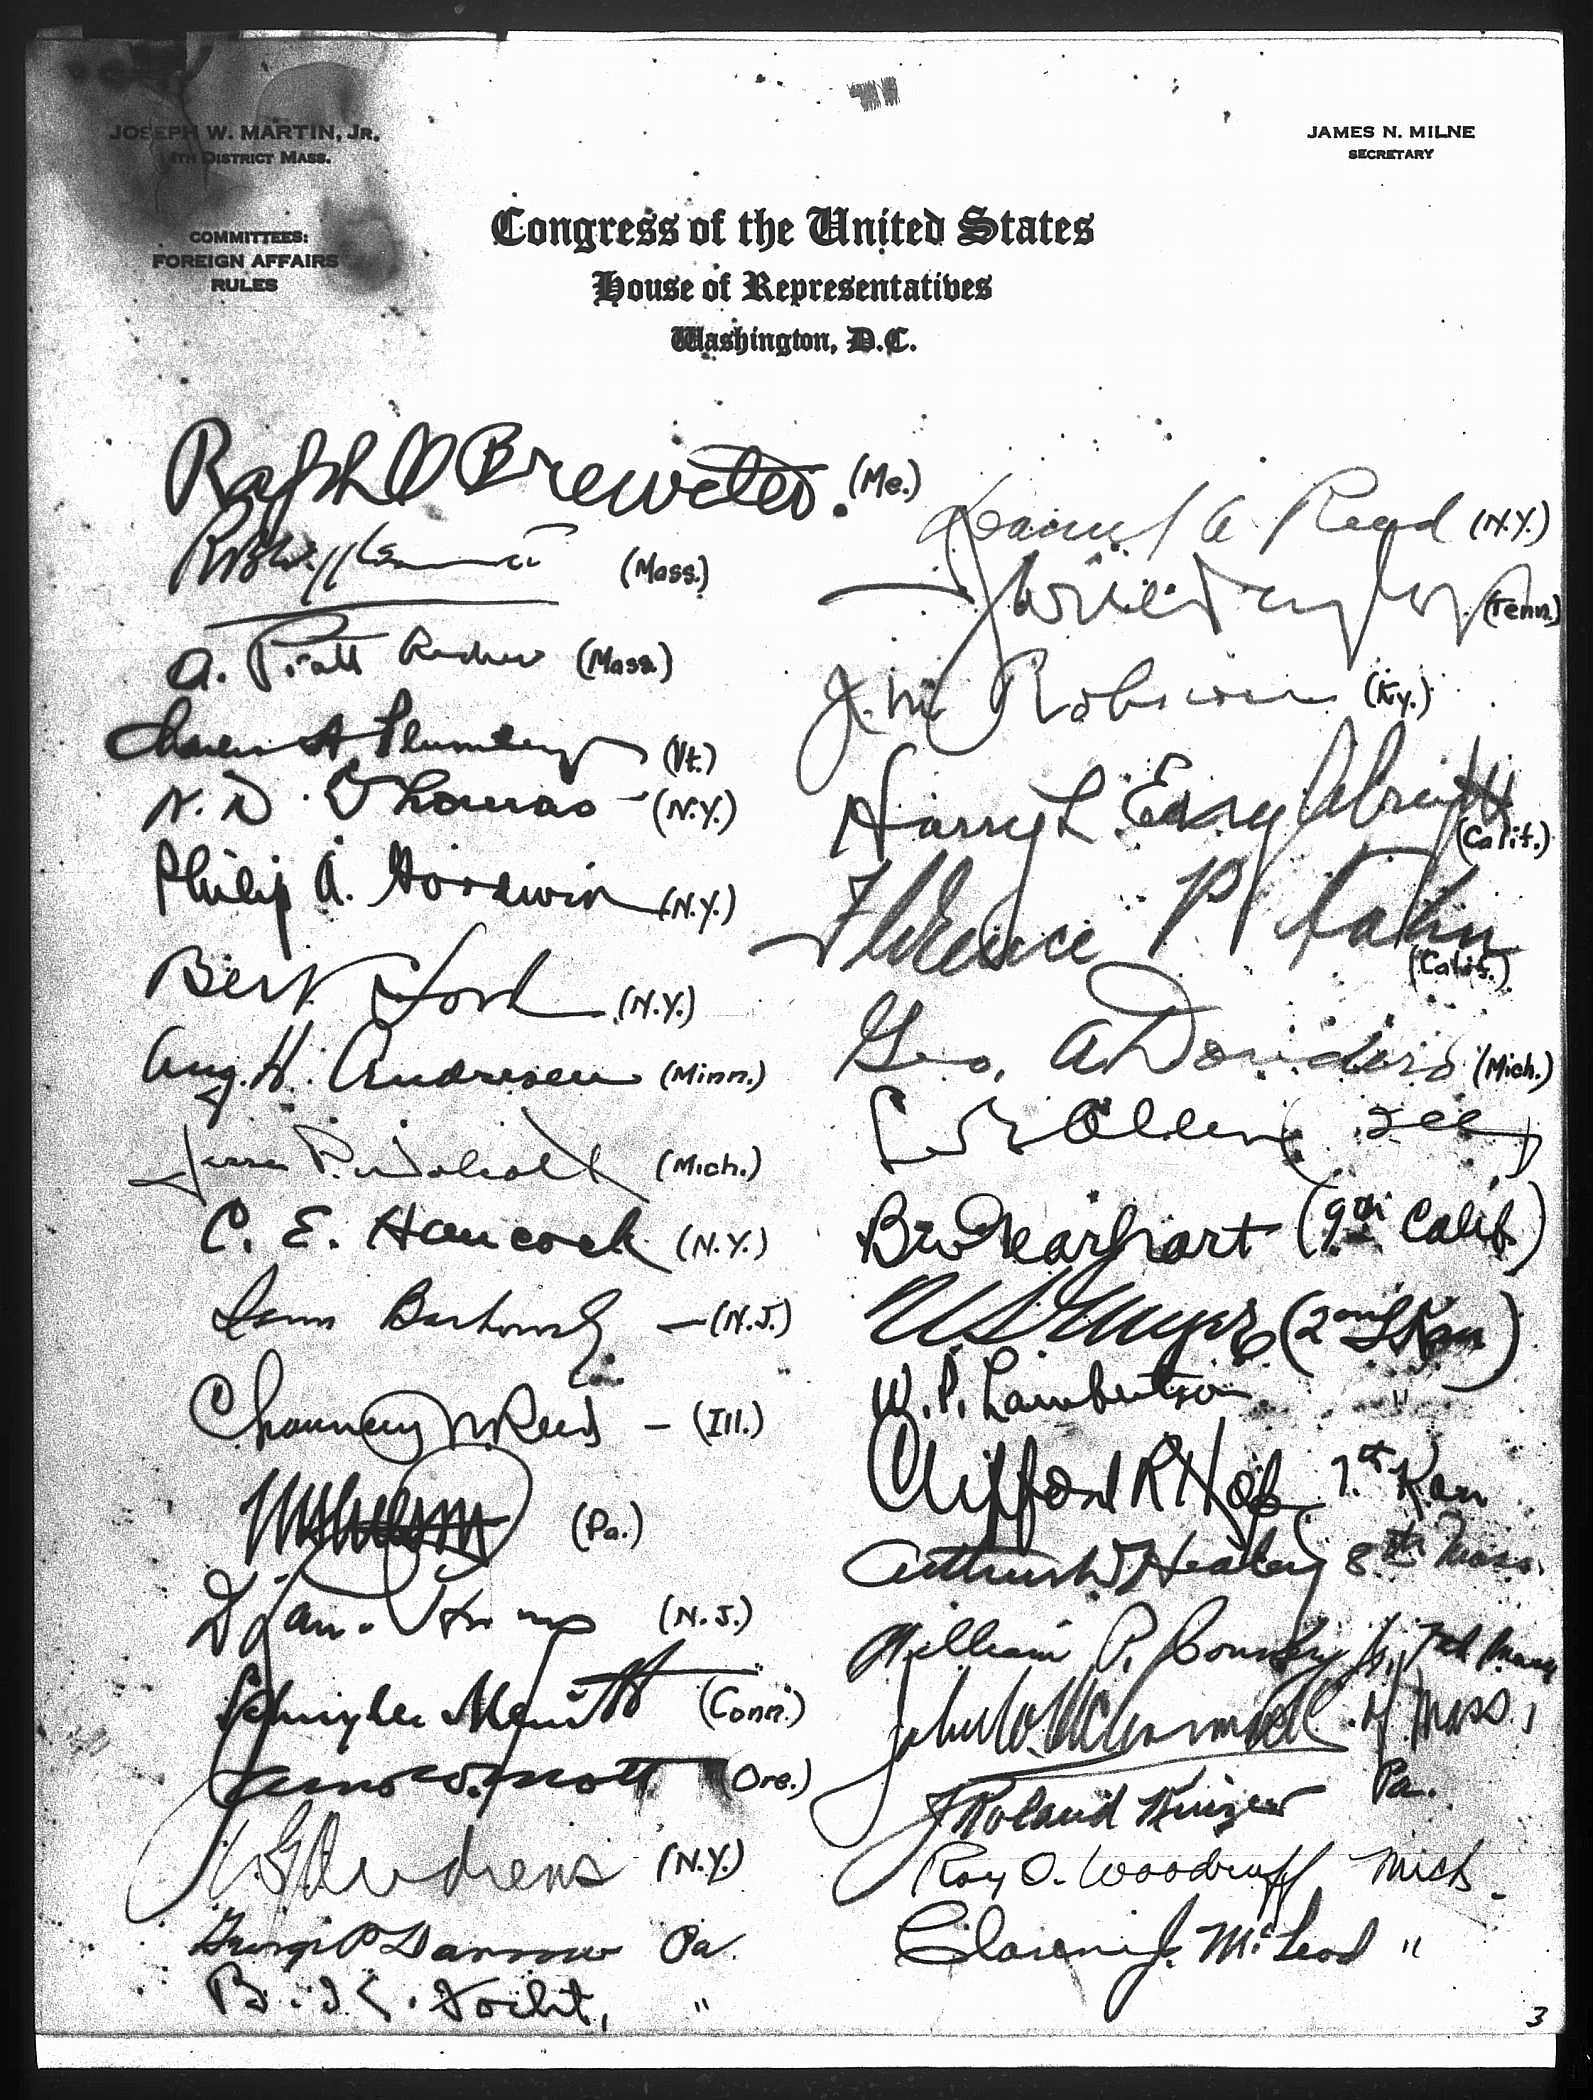 JOSEPH W. MARTIN, JR.
4TH DISTRICT MASS.
COMMITTEES:
FOREIGN AFFAIRS
RULES
JAMES N. MILNE
SECRETARY
Congress of the United States
House of Representatives
Washington, D.C.
Ralph O Brewster. (Me.)
(Mass.)
A. Piatt Andrew (Mass.)
Charles A Plumley (Vt.)
N. D. Thomas - (N.Y.)
Philip A. Goodwin (N.Y.)
Bert Lord (N.Y.)
Aug. H. Andresen (Minn.)
Jesse P. Wolcott (Mich.)
C. E. Hancock (N.Y.)
(N.J.)
Chauncey W. Reed - (Ill.)
(Pa.)
(N.J.)
Schuyler Merritt (Conn.)
James W. Mott (Ore.)
W. G. Andrews (N.Y.)
George P Darrow Pa.
B. K. Focht, "
Daniel A Reed (N.Y.)
J Will Taylor (Tenn.)
J. M. Robsion (Ky.)
Harry L. Englebright (Calif.)
Florence P Kahn (Calif.)
Geo. A Dondero (Mich.)
Allen (Ill)
B W Gearhart (9th Calif.)
U S Guyer (2nd Kan)
W. P. Lambertson "
Clifford R Hope 7th Kan
Arthur D Healey 8th Mass.
William P. Connery Jr, 7th Mass
John W. McCormack of Mass.,
J Roland Kinzer Pa.
Roy O. Woodruff Mich.
Clarence J. McLeod "
3